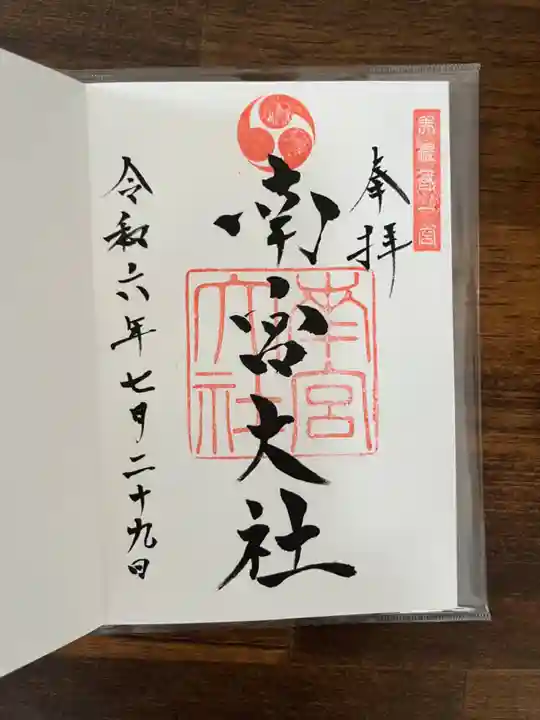 美濃國一宮
奉拝
南宮大社
南宮大社
令和六年七月二十九日